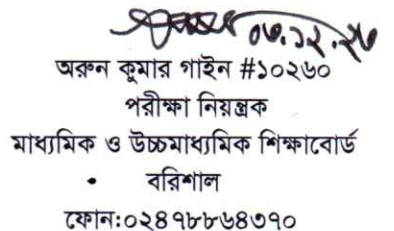 ০৬.১২.২৩
অরুন কুমার গাইন #১০২৬০
পরীক্ষা নিয়ন্ত্রক
মাধ্যমিক ও উচ্চমাধ্যমিক শিক্ষাবোর্ড
বরিশাল
ফোন:০২৪৭৮৮৬৪৩৭০